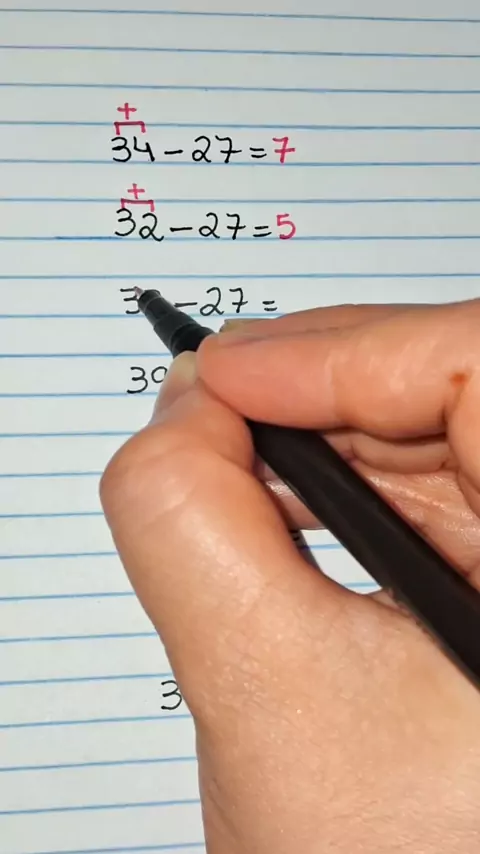 +
34 - 27 = 7
+
32 - 27 = 5
3 - 27 =
3
3